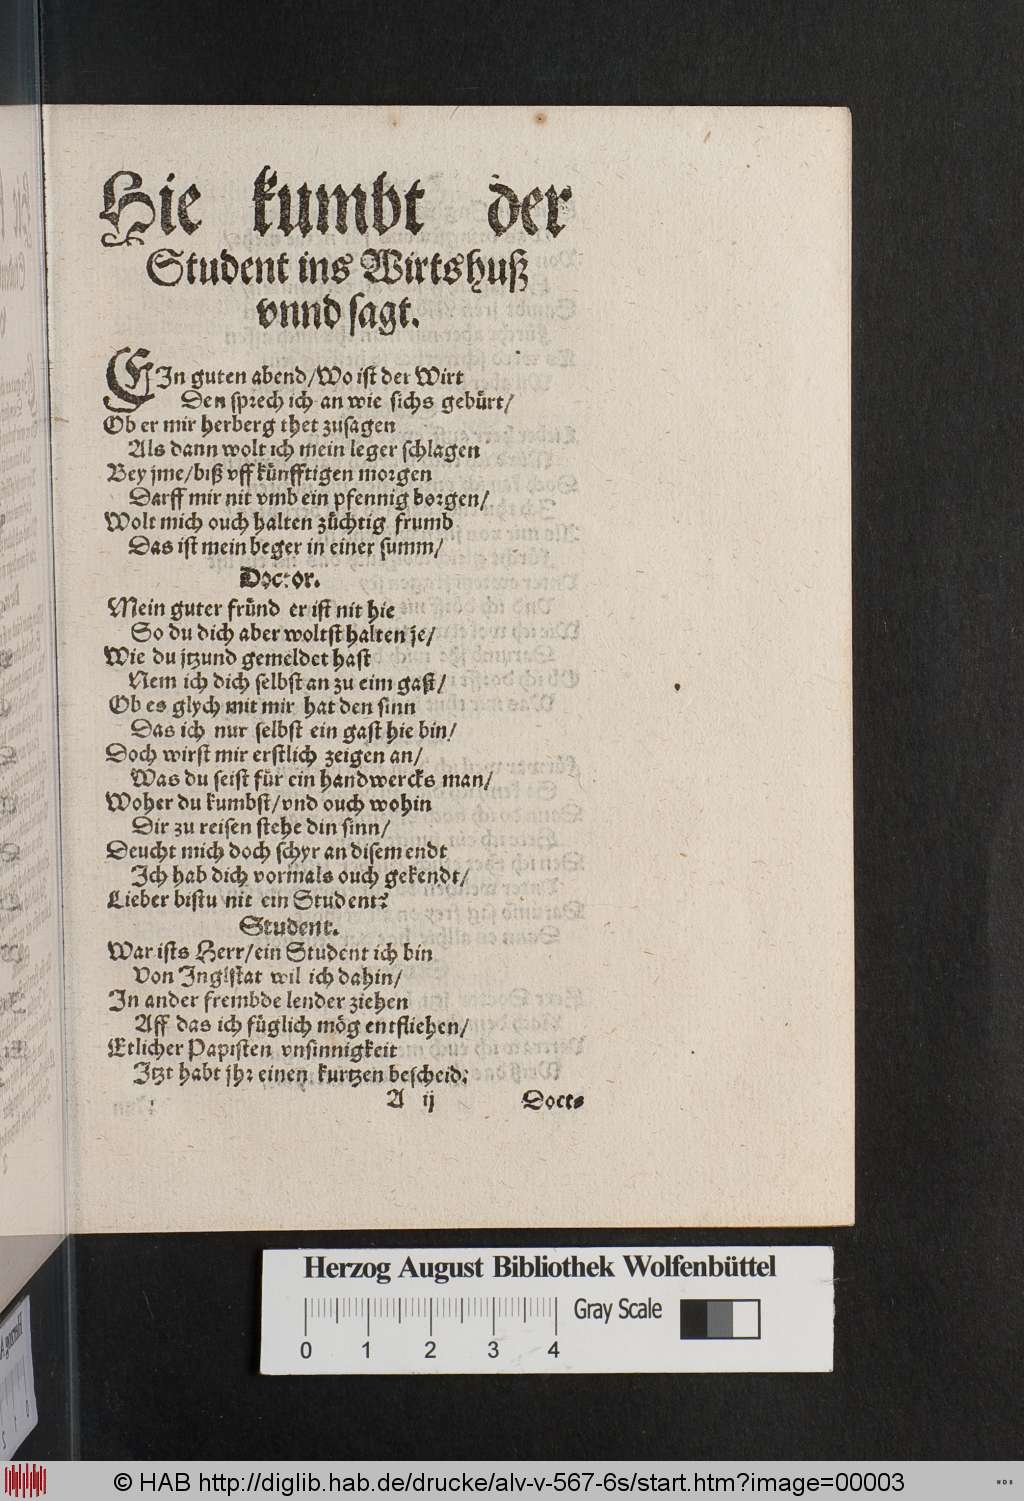 Hie kumbt der
Student ins Wirtshuß
vnnd sagt.
EIn guten abend/Wo ist der Wirt
Den sprech ich an wie sichs gebürt/
Ob er mir herberg thet zusagen
Als dann wolt ich mein leger schlagen
Bey jme/biß vff künfftigen morgen
Darff mir nit vmb ein pfennig borgen/
Wolt mich ouch halten züchtig frumb
Das ist mein beger in einer summ/
Doctor.
Mein guter fründ er ist nit hie
So du dich aber woltst halten je/
Wie du jtzund gemeldet hast
Nem ich dich selbst an zu eim gast/
Ob es glych mit mir hat den sinn
Das ich nur selbst ein gast hie bin/
Doch wirst mir erstlich zeigen an/
Was du seist für ein handwercks man/
Woher du kumbst/vnd ouch wohin
Dir zu reisen stehe din sinn/
Deucht mich doch schyr an disem endt
Ich hab dich vormals ouch gekendt/
Lieber bistu nit ein Student?
Student.
War ists Herr/ein Student ich bin
Von Inglstat wil ich dahin/
In ander frembde lender ziehen
Aff das ich füglich mög entfliehen/
Etlicher Papisten vnsinnigkeit
Jtzt habt jhr einen kurtzen bescheid:
A ij Doct⸗
Herzog August Bibliothek Wolfenbüttel
Gray Scale
0 1 2 3 4
© HAB http://diglib.hab.de/drucke/alv-v-567-6s/start.htm?image=00003